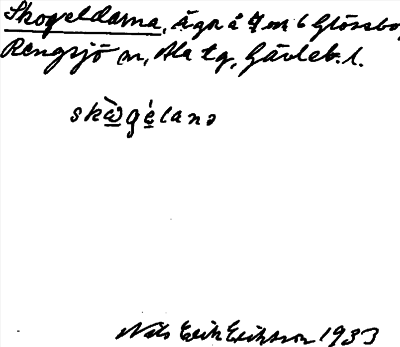 Skogeldarna, Ägor å 7 m 6 Glössbo,
Rengsjö sn, Ala tg, Gävleb. l.
skɷ̀gélanə
Nils Erik Eriksson 1933